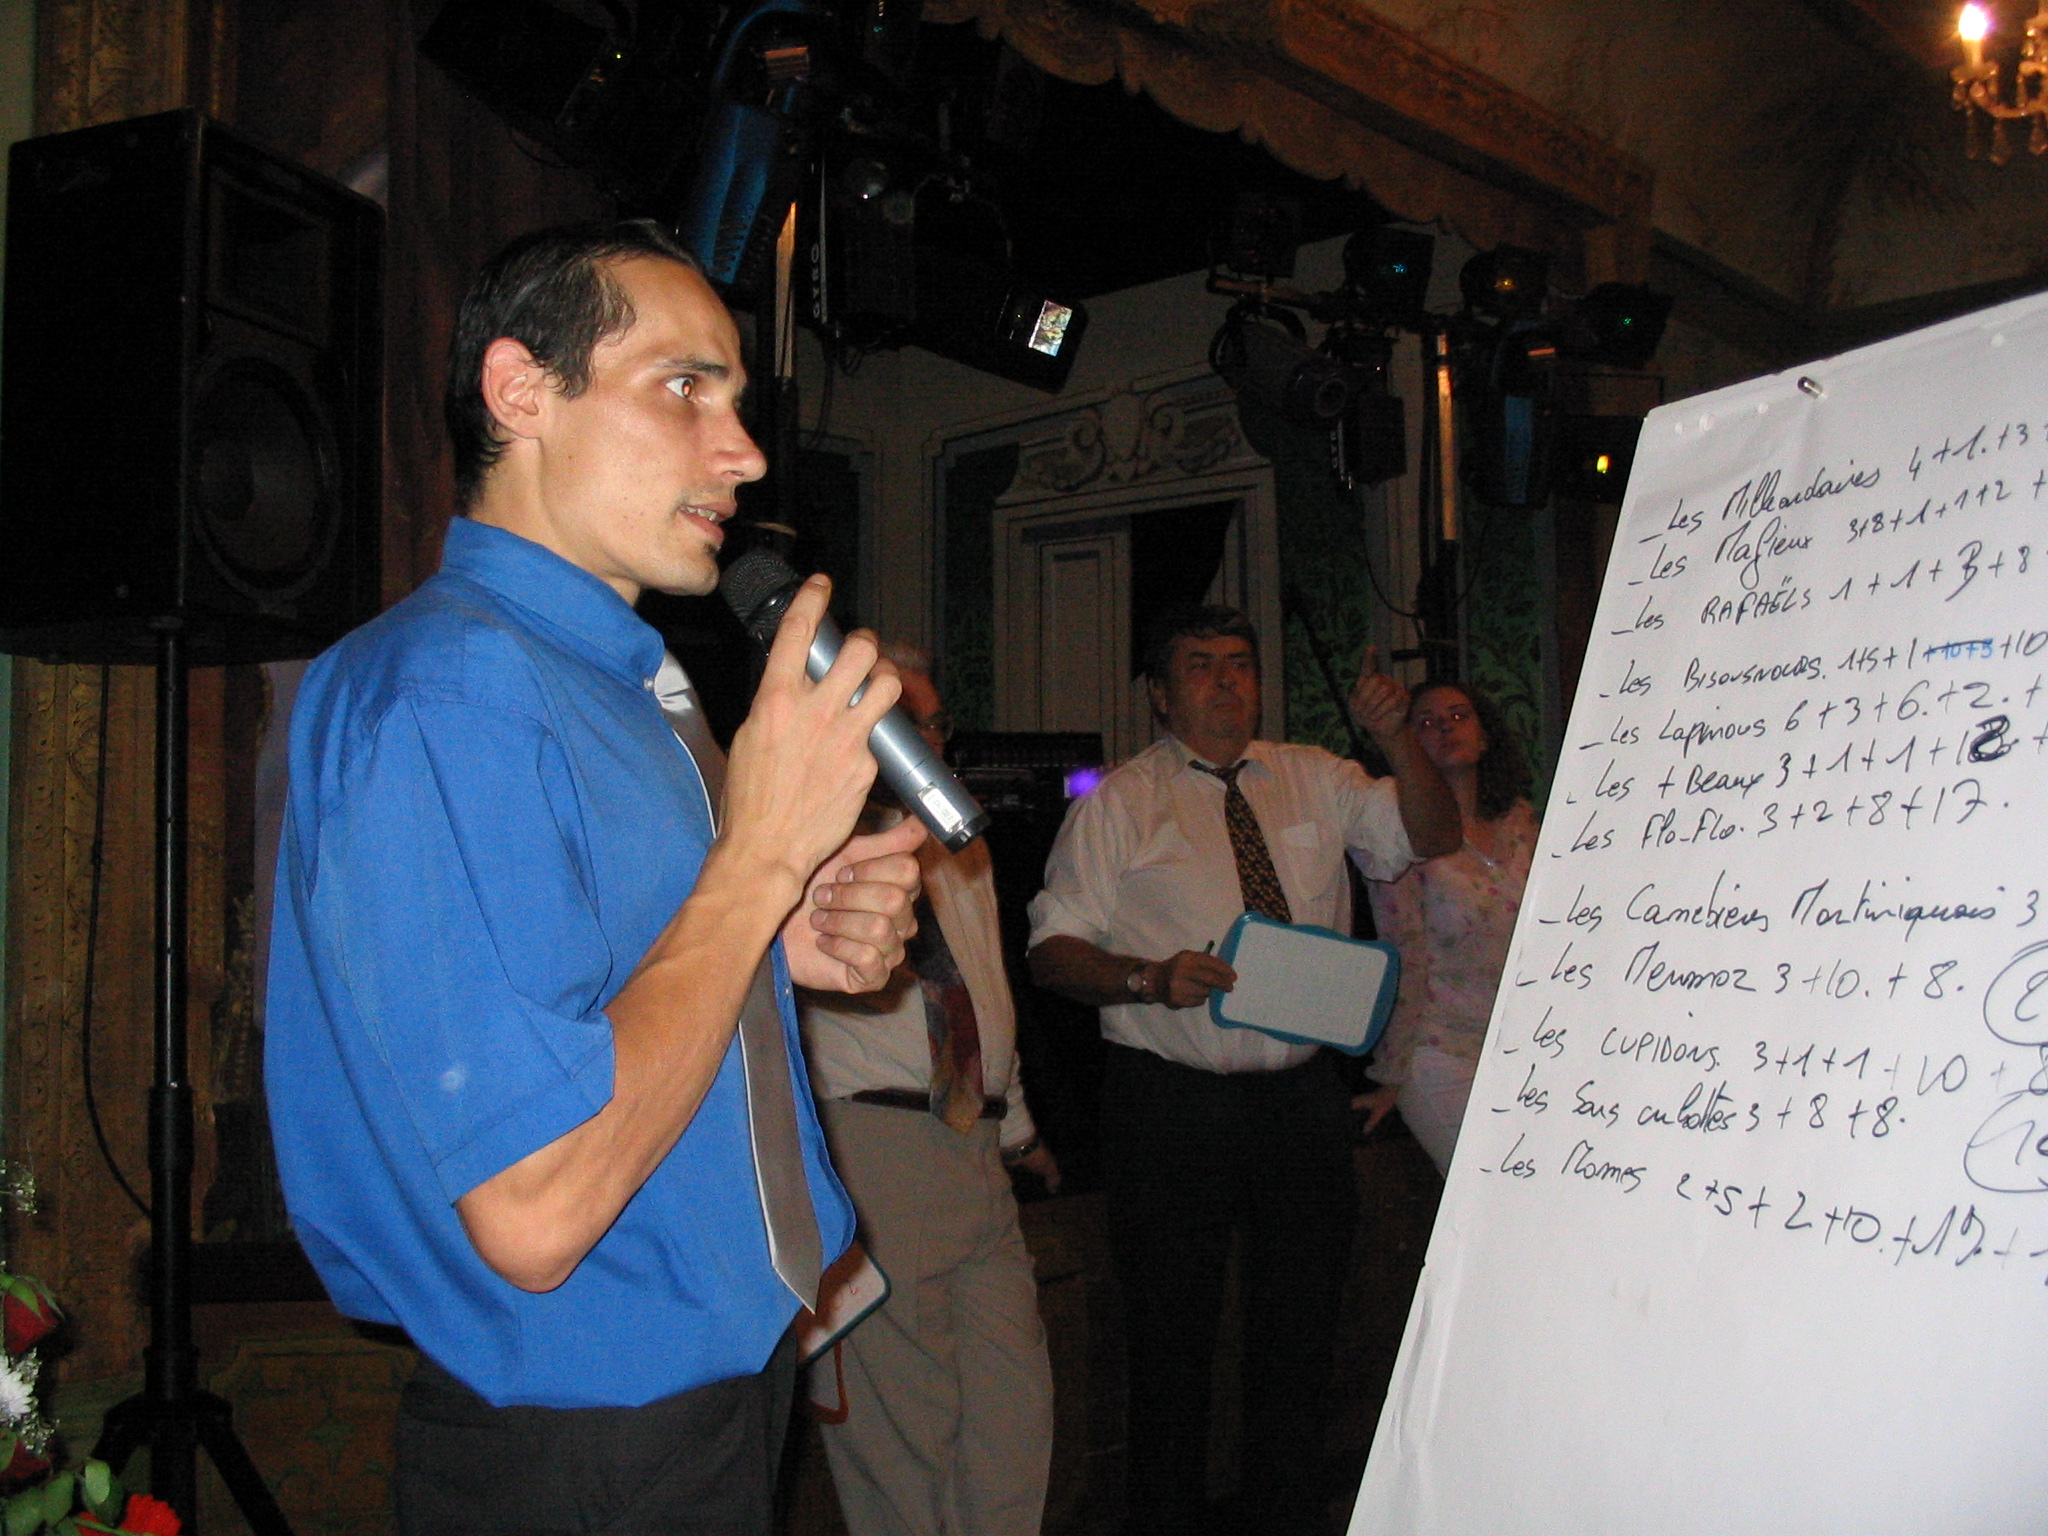 _Les Milliardaires 4+1.+3
_Les Mafieux 3+8+1+1+2 +
_Les RAFAËLS 1+1+3+8
_Les Bisousnours. 1+5+1 +10+5 +10
_Les Lapinous 6+3+6.+2.+
_Les + Beaux 3+1+1+12 +
_Les Flo-Flo. 3+2+8+17.
_Les Caraibiens Martiniquais 3
_Les Mermoz 3+10.+8.
_Les CUPIDONS. 3+1+1+10+8
_Les Sans culottes 3+8+8.
_Les Momes 2+5+2+10.+17.+
GYRO